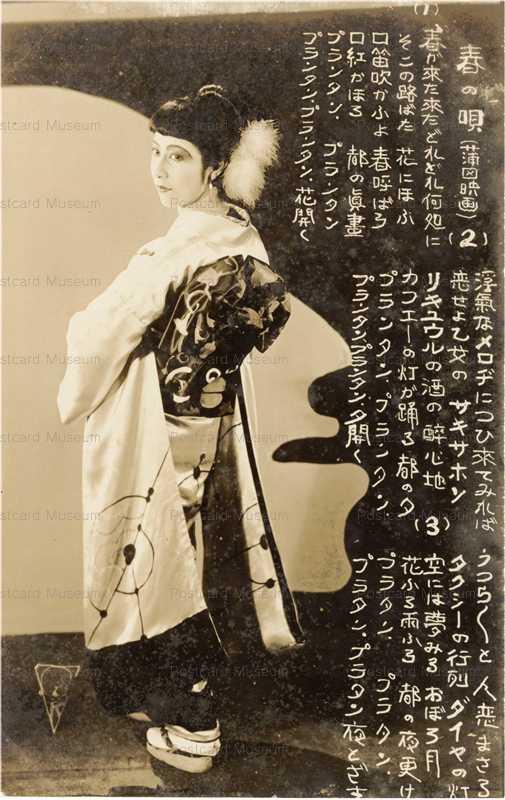 春の唄(蒲田映画)
(1)
春が来た来たどれどれ何処に
そこの路ばた 花にほふ
口笛吹かふよ 春呼ばろ
口紅かほる 都の真昼
プランタン、プランタン
プランタン、プランタン、花開く
(2)
浮気なメロヂにつひ来てみれば
恋せよ乙女の サキサホン
リキュウルの酒の酔心地
カフエーの灯が踊る都の夕
プランタン、プランタン
プランタンプランタン、夕開く
(3)
うつら〱と 人恋まさる
タクシーの行列 ダイヤの灯
空には夢みる おぼろ月
花ふる雨ふる 都の夜更け
プラタン、プラタン、
プラタン、プラタン夜とざす
Postcard Museum